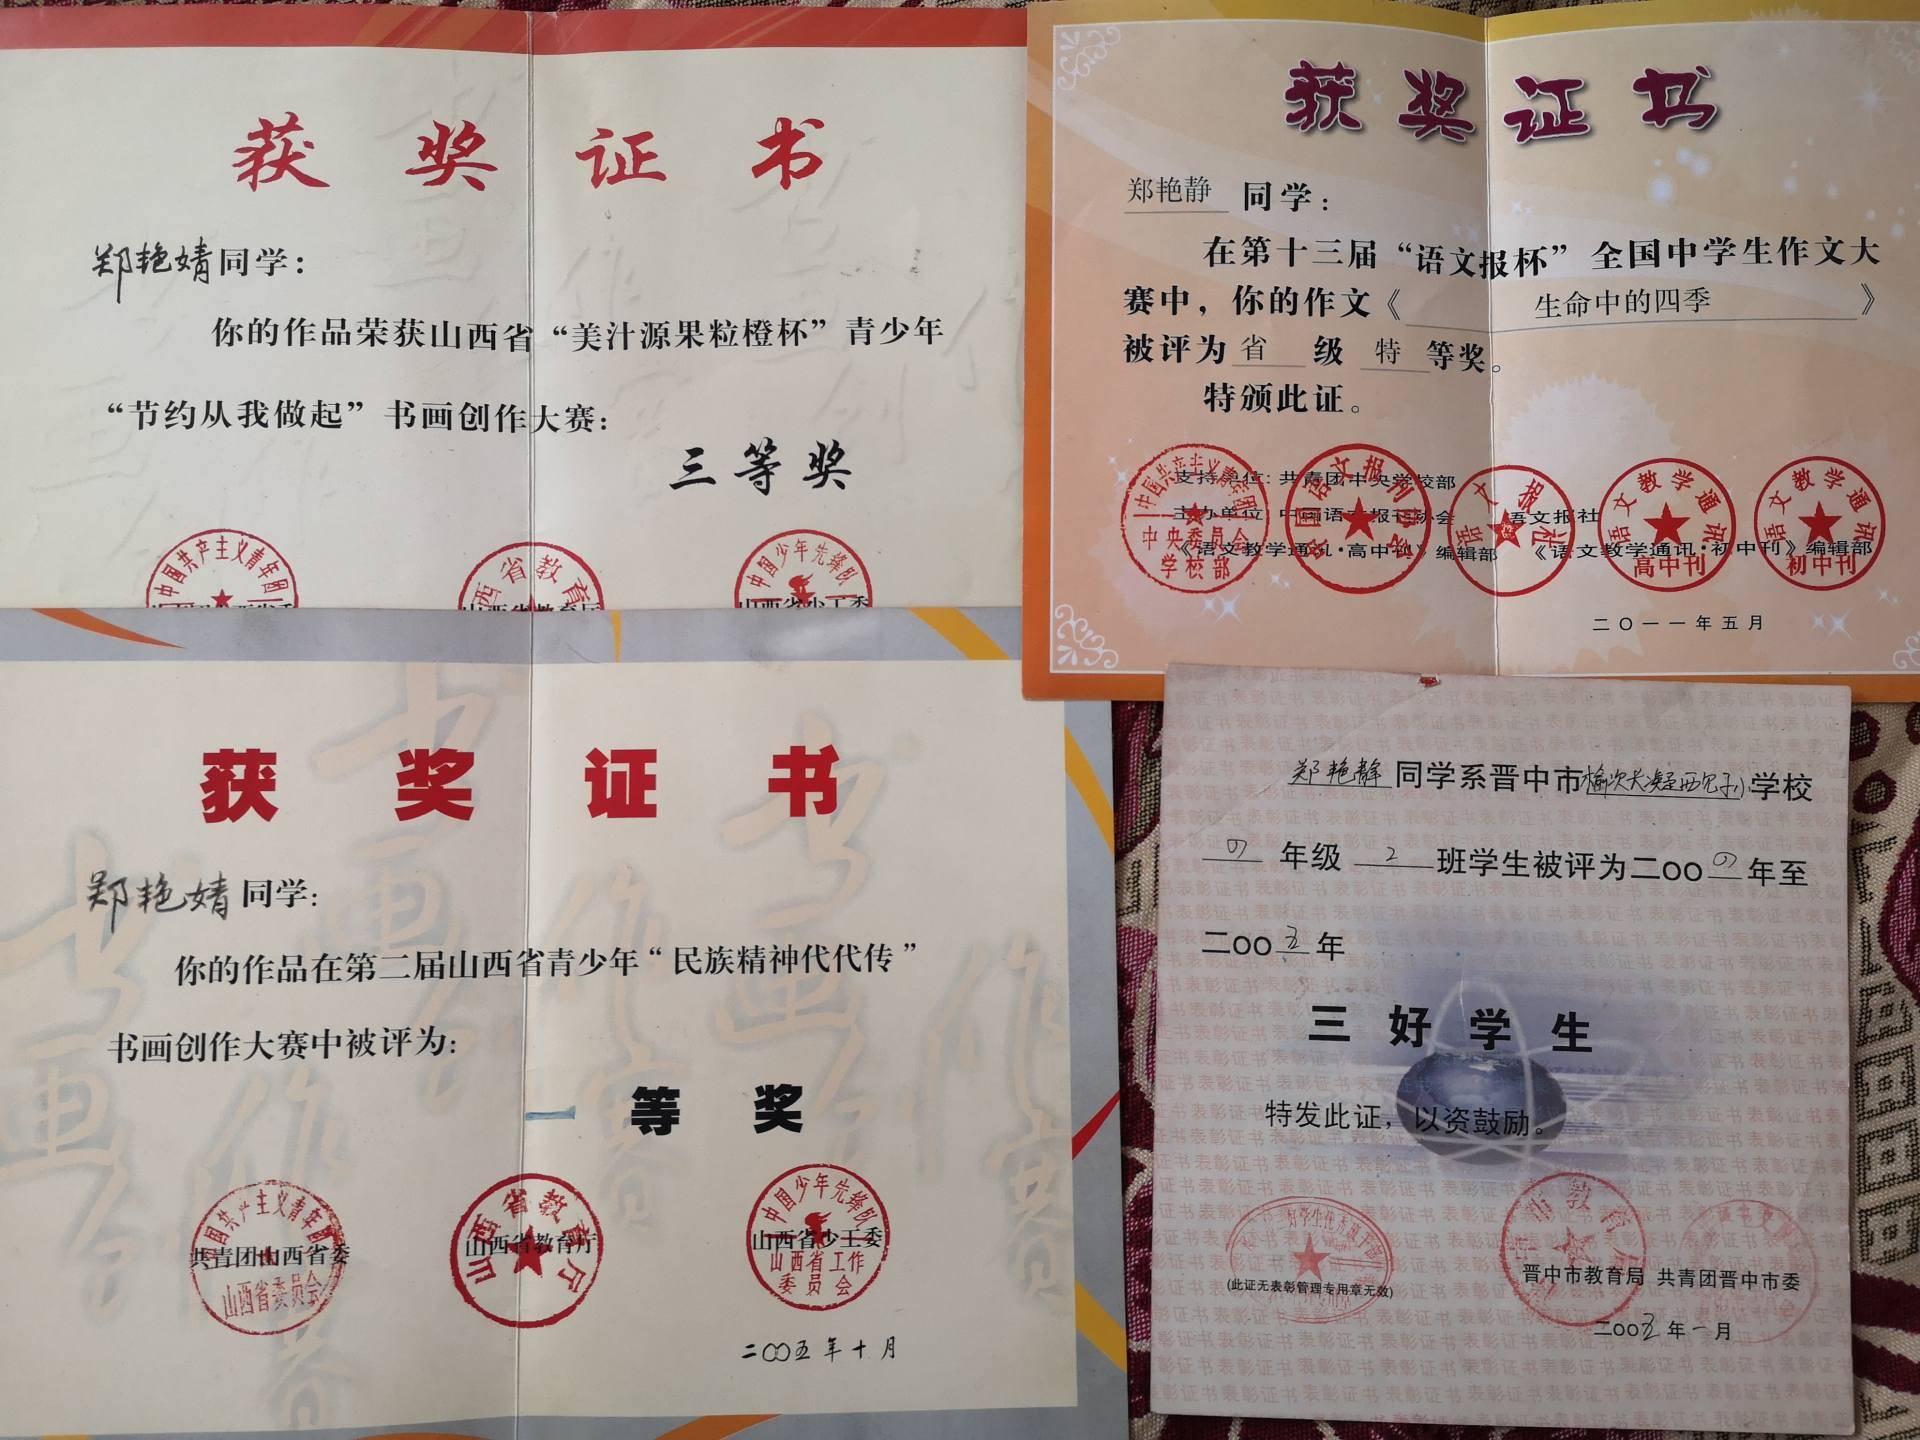 获奖证书
郑艳婧同学：
你的作品荣获山西省“美汁源果粒橙杯”青少年
“节约从我做起”书画创作大赛：
三等奖
中国共产主义青年团
山西省教育厅
中国少年先锋队
山西省少工委
获奖证书
郑艳静 同学：
在第十三届“语文报杯”全国中学生作文大
赛中，你的作文《 生命中的四季 》
被评为 省 级 特 等奖。
特颁此证。
支持单位：共青团中央学校部
主办单位 中国语文报刊协会 语文报社
《语文教学通讯·高中刊》编辑部 《语文教学通讯·初中刊》编辑部
中国共产主义青年团
中央委员会
学校部
语文报社
语文教学通讯
高中刊
语文教学通讯
初中刊
二〇一一年五月
获奖证书
郑艳婧同学：
你的作品在第二届山西省青少年“民族精神代代传”
书画创作大赛中被评为：
一等奖
共青团山西省委
山西省委员会
山西省教育厅
山西省教育厅
中国少年先锋队
山西省少工委
山西省工作
委员会
二〇〇五年十月
郑艳静 同学系晋中市 学校
四 年级 2 班学生被评为二〇〇四年至
二〇〇五年
三好学生
特发此证，以资鼓励。
(此证无表彰管理专用章无效)
晋中市教育局 共青团晋中市委
二〇〇五年一月